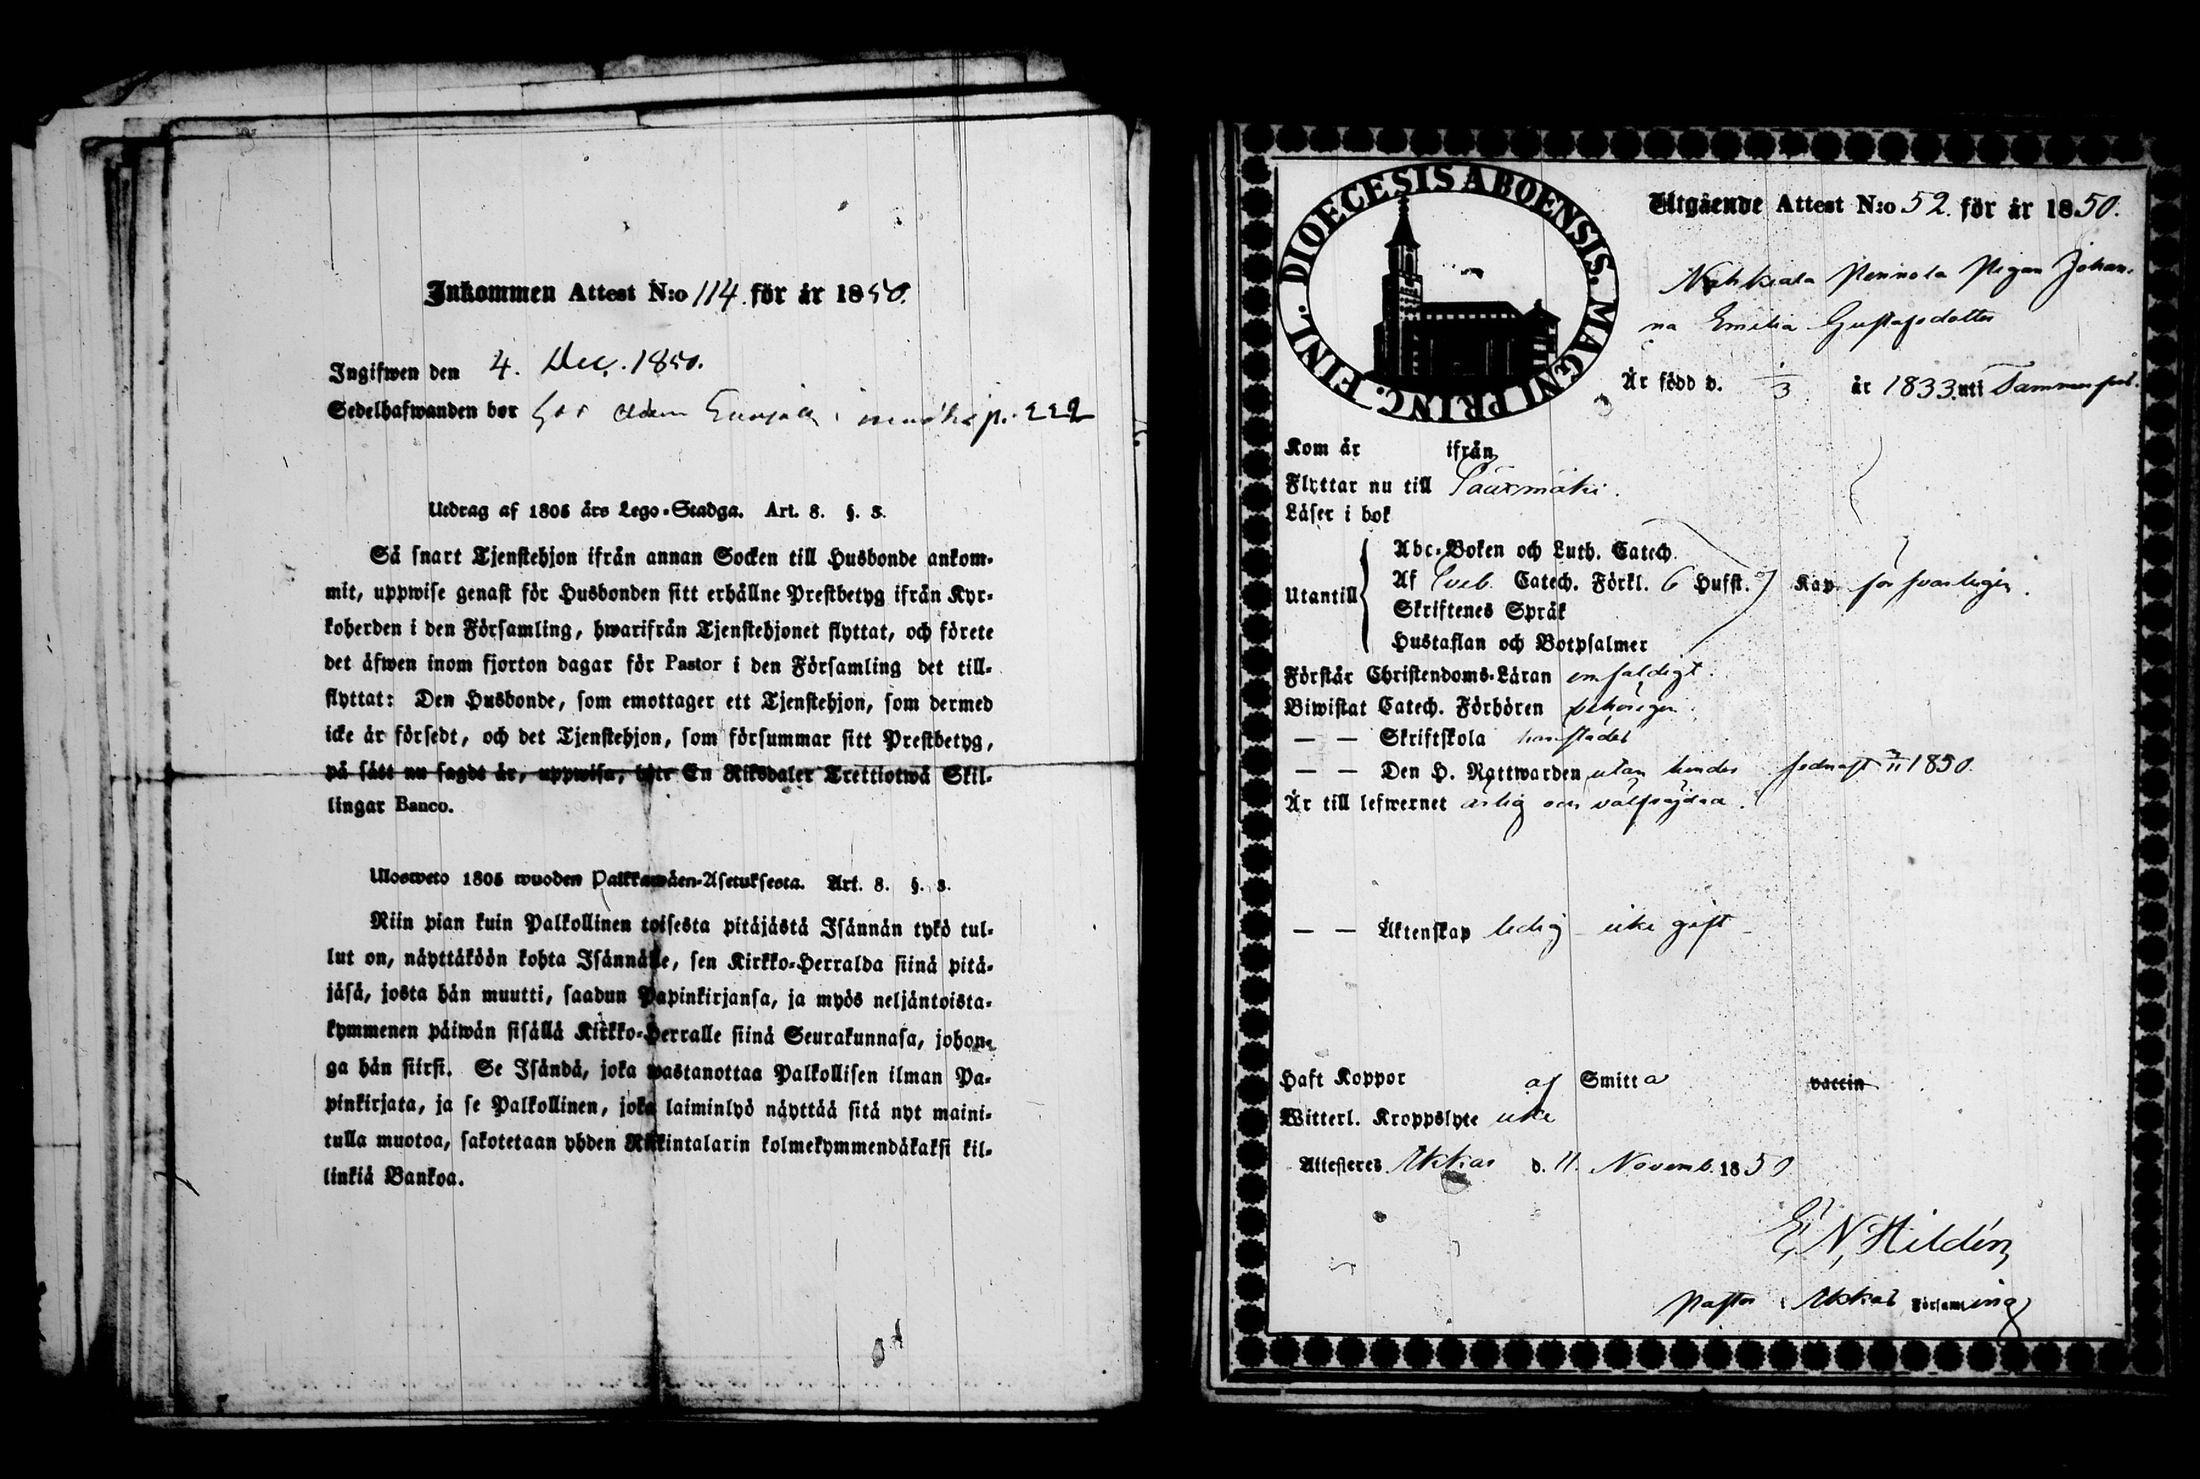 Inkommen Attest N:o 114 för år 1850.
Ingifwen den 4. Dec. 1850.
Sedelhafwanden bor hos p. 222
Utdrag af 1805 års Lego-Stadga. Art. 8. §. 3.
Så snart Tjenstehjon ifrån annan Socken till Husbonde ankom-
mit, uppwise genast för Husbonden sitt erhållne Prestbetyg ifrån Kyr-
koherden i den Församling, hwarifrån Tjenstehjonet flyttat, och förete
det äfwen inom fjorton dagar för Pastor i den Församling det till-
flyttat: Den Husbonde, som emottager ett Tjenstehjon, som dermed
icke är försedt, och det Tjenstehjon, som försummar sitt Prestbetyg,
på sätt nu sagdt är, uppwisa, böte En Riksdaler Trettiotwå Skil-
lingar Banco.
Ulosweto 1805 wuoden Palkkawäen-Asetuksesta. Art. 8. §. 3.
Niin pian kuin Palkollinen toisesta pitäjästä Isännän tykö tul-
lut on, näyttäköön kohta Isännälle, sen Kirkko-Herralda siinä pitä-
jäsä, josta hän muutti, saadun Papinkirjansa, ja myös neljäntoista-
kymmenen päiwän sisällä Kirkko-Herralle siinä Seurakunnasa, johon-
ga hän siirsi. Se Isändä, joka wastanottaa Palkollisen ilman Pa-
pinkirjata, ja se Palkollinen, joka laiminlyö näyttää sitä nyt maini-
tulla muotoa, sakotetaan yhden Riikintalarin kolmekymmendäkaksi kil-
linkiä Bankoa.
DIOECESIS ABOENSIS. MAGNI PRINC. FINL.
Utgående Attest N:o 52. för år 1850.
Nahkiala Pennola Pigan Johan-
na Emilia Gustafsdotter
Är född d. 1/3 år 1833 uti Tammerfors.
Kom år ifrån
Flyttar nu till Sääxmäki.
Läser i bok
Utantill
Abc-Boken och Luth. Catech.
Af Sveb. Catech. Förkl. 6 Hufst. 7 Kap. försvarligen.
Skriftenes Språk
Hustaflan och Botpsalmer
Förstår Christendoms-Läran enfaldigt.
Biwistat Catech. Förhören behörigen.
— — Skriftskola
— — Den H. Nattwarden 1850.
Är till lefwernet ärlig och välfrejdad.
— — Äktenskap ledig icke gift
Haft Koppor af Smitta vaccin
Witterl. Kroppslyte icke
Attesteres Akkas d. 11. Novemb. 1850
E. N. Hildén
Pastor i Akkas Församling